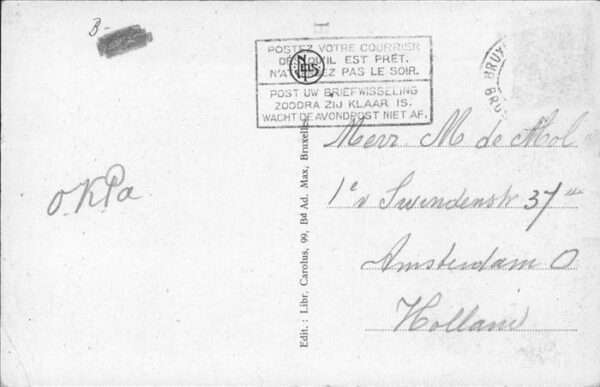 B-
POSTEZ VOTRE COURRIER
DÈS QU'IL EST PRÊT.
N'ATTENDEZ PAS LE SOIR.
POST UW BRIEFWISSELING
ZOODRA ZIJ KLAAR IS.
WACHT DE AVONDPOST NIET AF.
Edit. : Libr. Carolus, 99, Bd Ad. Max, Bruxelles
O.K Pa
Merr. M de Mol
1e v Swindenstr 37
Amsterdam O
Holland